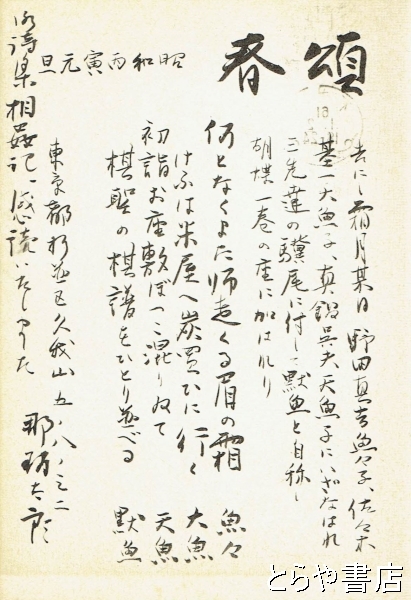 頌春
去にし霜月某日 野田真吉魚々子、佐々木
基一大魚子、真鍋呉夫天魚子にいざなはれ
三先達の驥尾に付して黙魚と自称し
胡蝶一巻の座に加はれり
何となくよた師走くる眉の霜 魚々
けふは米屋へ炭買ひに行く 大魚
初詣お座敷ぽつこ混りゐて 天魚
棋聖の棋譜をひとり並べる 黙魚
昭和丙寅元旦
東京都杉並区久我山五ノ八ノ三二
那珂太郎
御詩集相姦記、感読いたしました
とらや書店